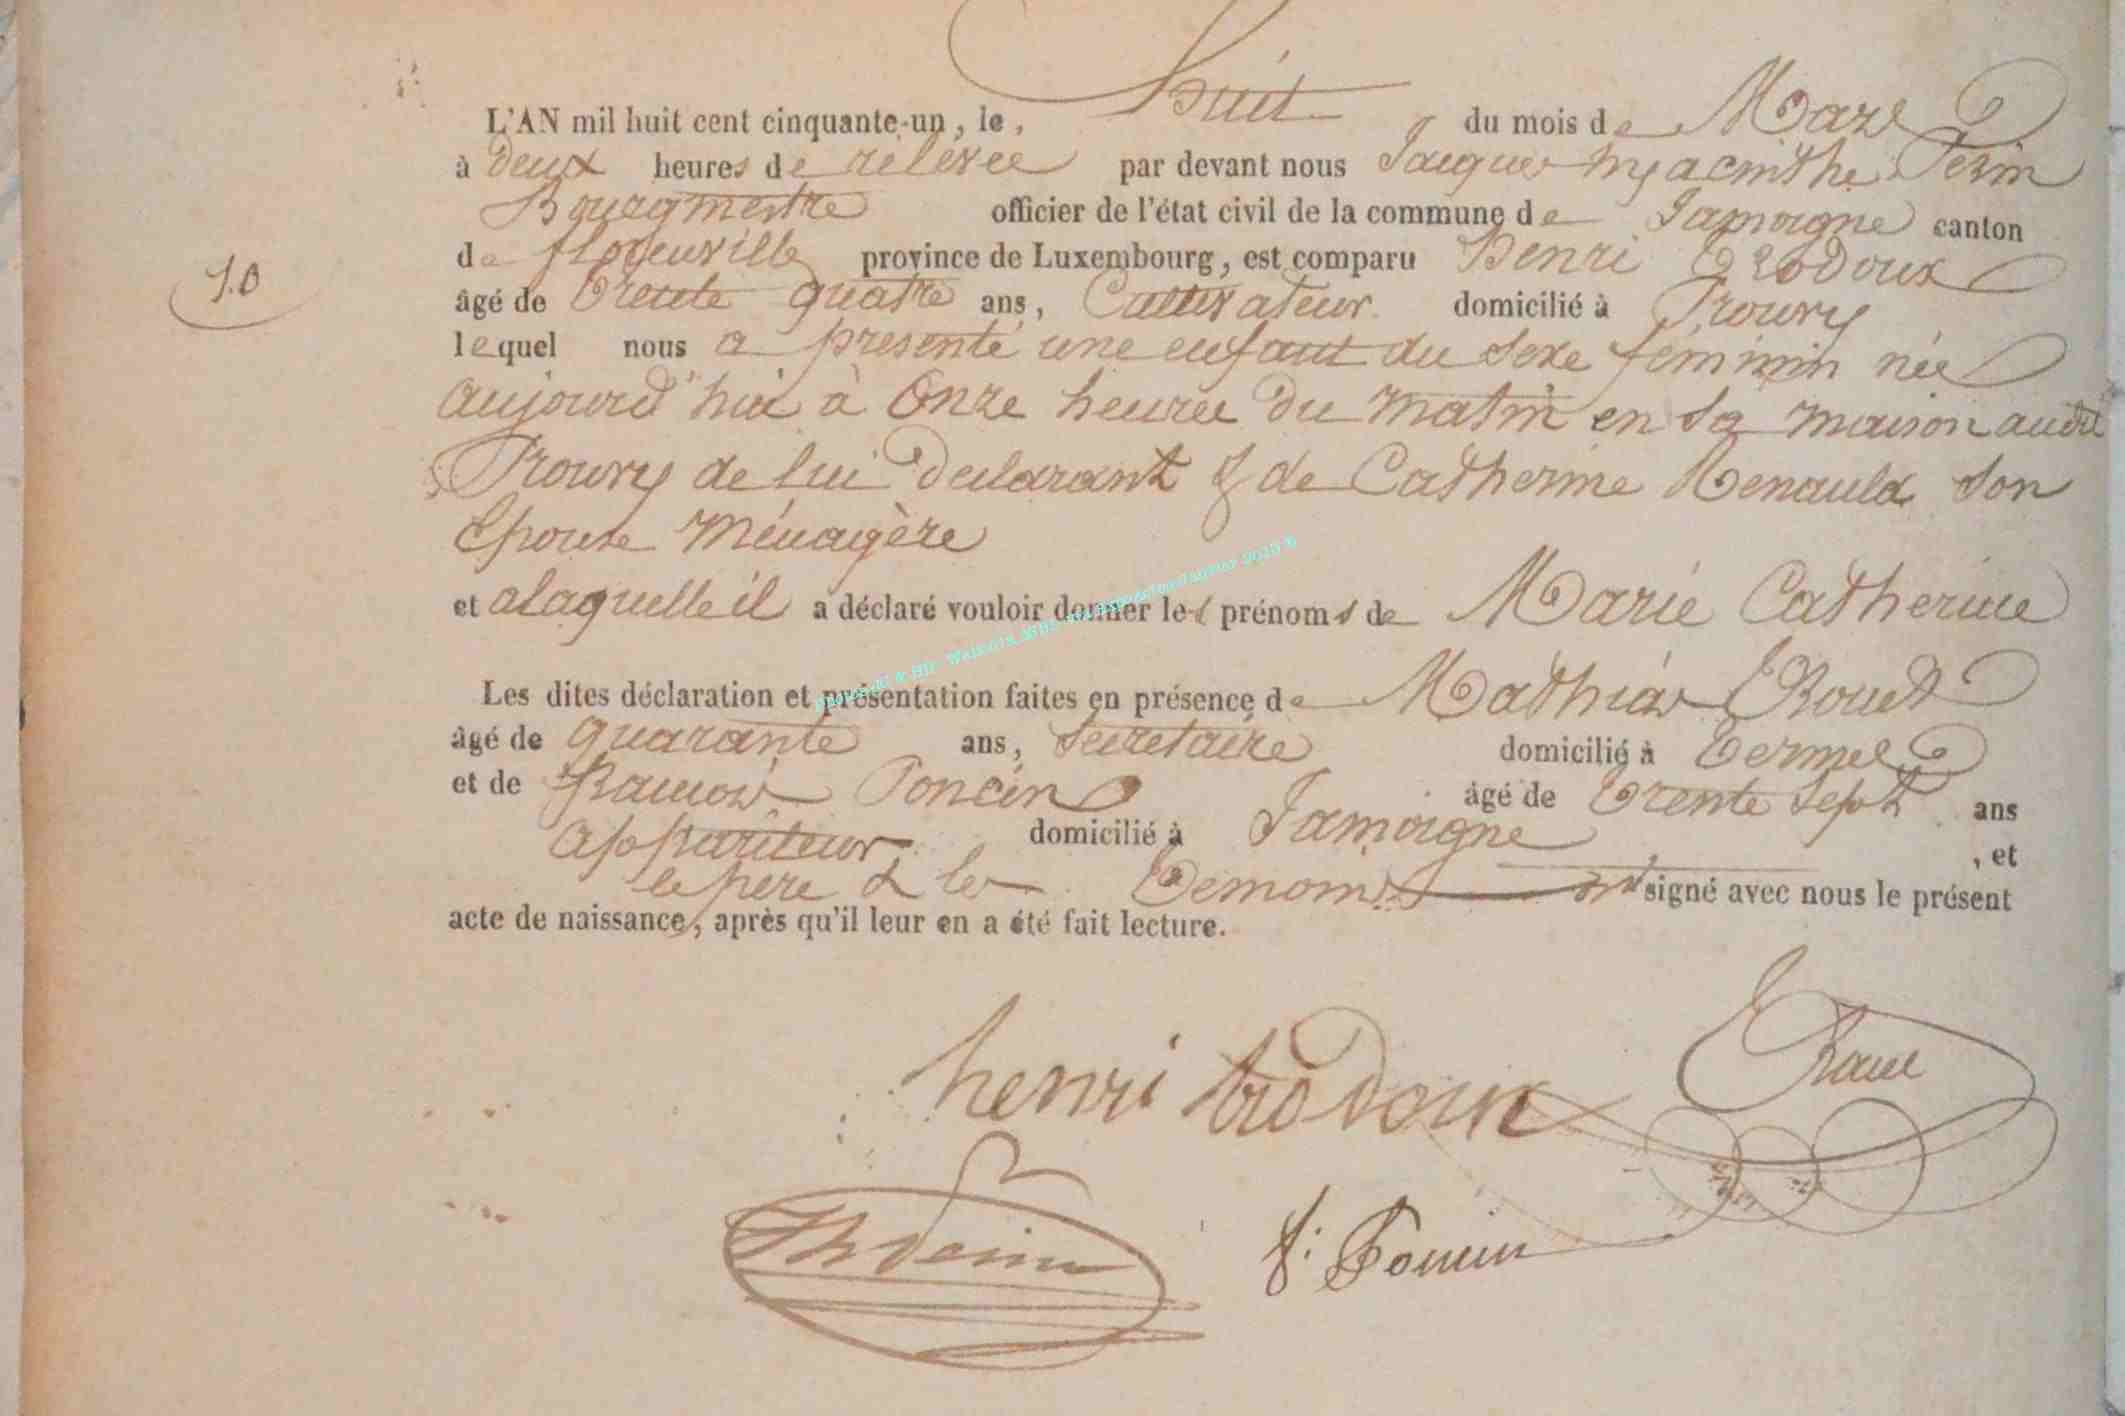 L'AN mil huit cent cinquante-un, le, huit du mois de Mars
à deux heures de relevée par devant nous Jacques hyacinthe Perin
Bourgmestre officier de l'état civil de la commune de Jamoigne canton
de florenville province de Luxembourg, est comparu Henri Trodoux
1.0
âgé de Trente quatre ans, Cultivateur domicilié à Prouvy
lequel nous a presenté une enfant du sexe féminin née
aujourd'hui à Onze heures du matin en sa maison audit
Prouvy de lui declarant & de Catherine Renauld son
Epouse Ménagère
et alaquelle il a déclaré vouloir donner les prénoms de Marie Catherine
Les dites déclaration et présentation faites en présence de Mathias
âgé de quarante ans, Secretaire domicilié à Termes
et de Poncin âgé de Trente sept ans
appariteur domicilié à Jamoigne , et
le père & les Temoins ont signé avec nous le présent
acte de naissance, après qu'il leur en a été fait lecture.
henri trodoux
f: Poncin